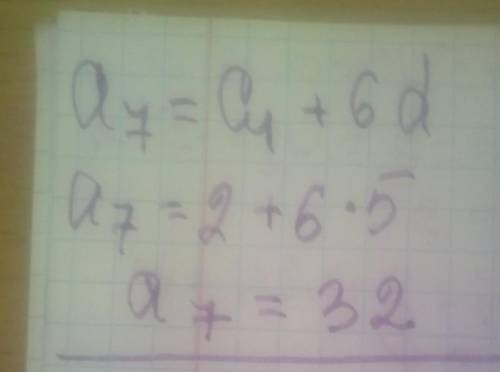 a₇ = a₁ + 6d
a₇ = 2 + 6 · 5
a₇ = 32